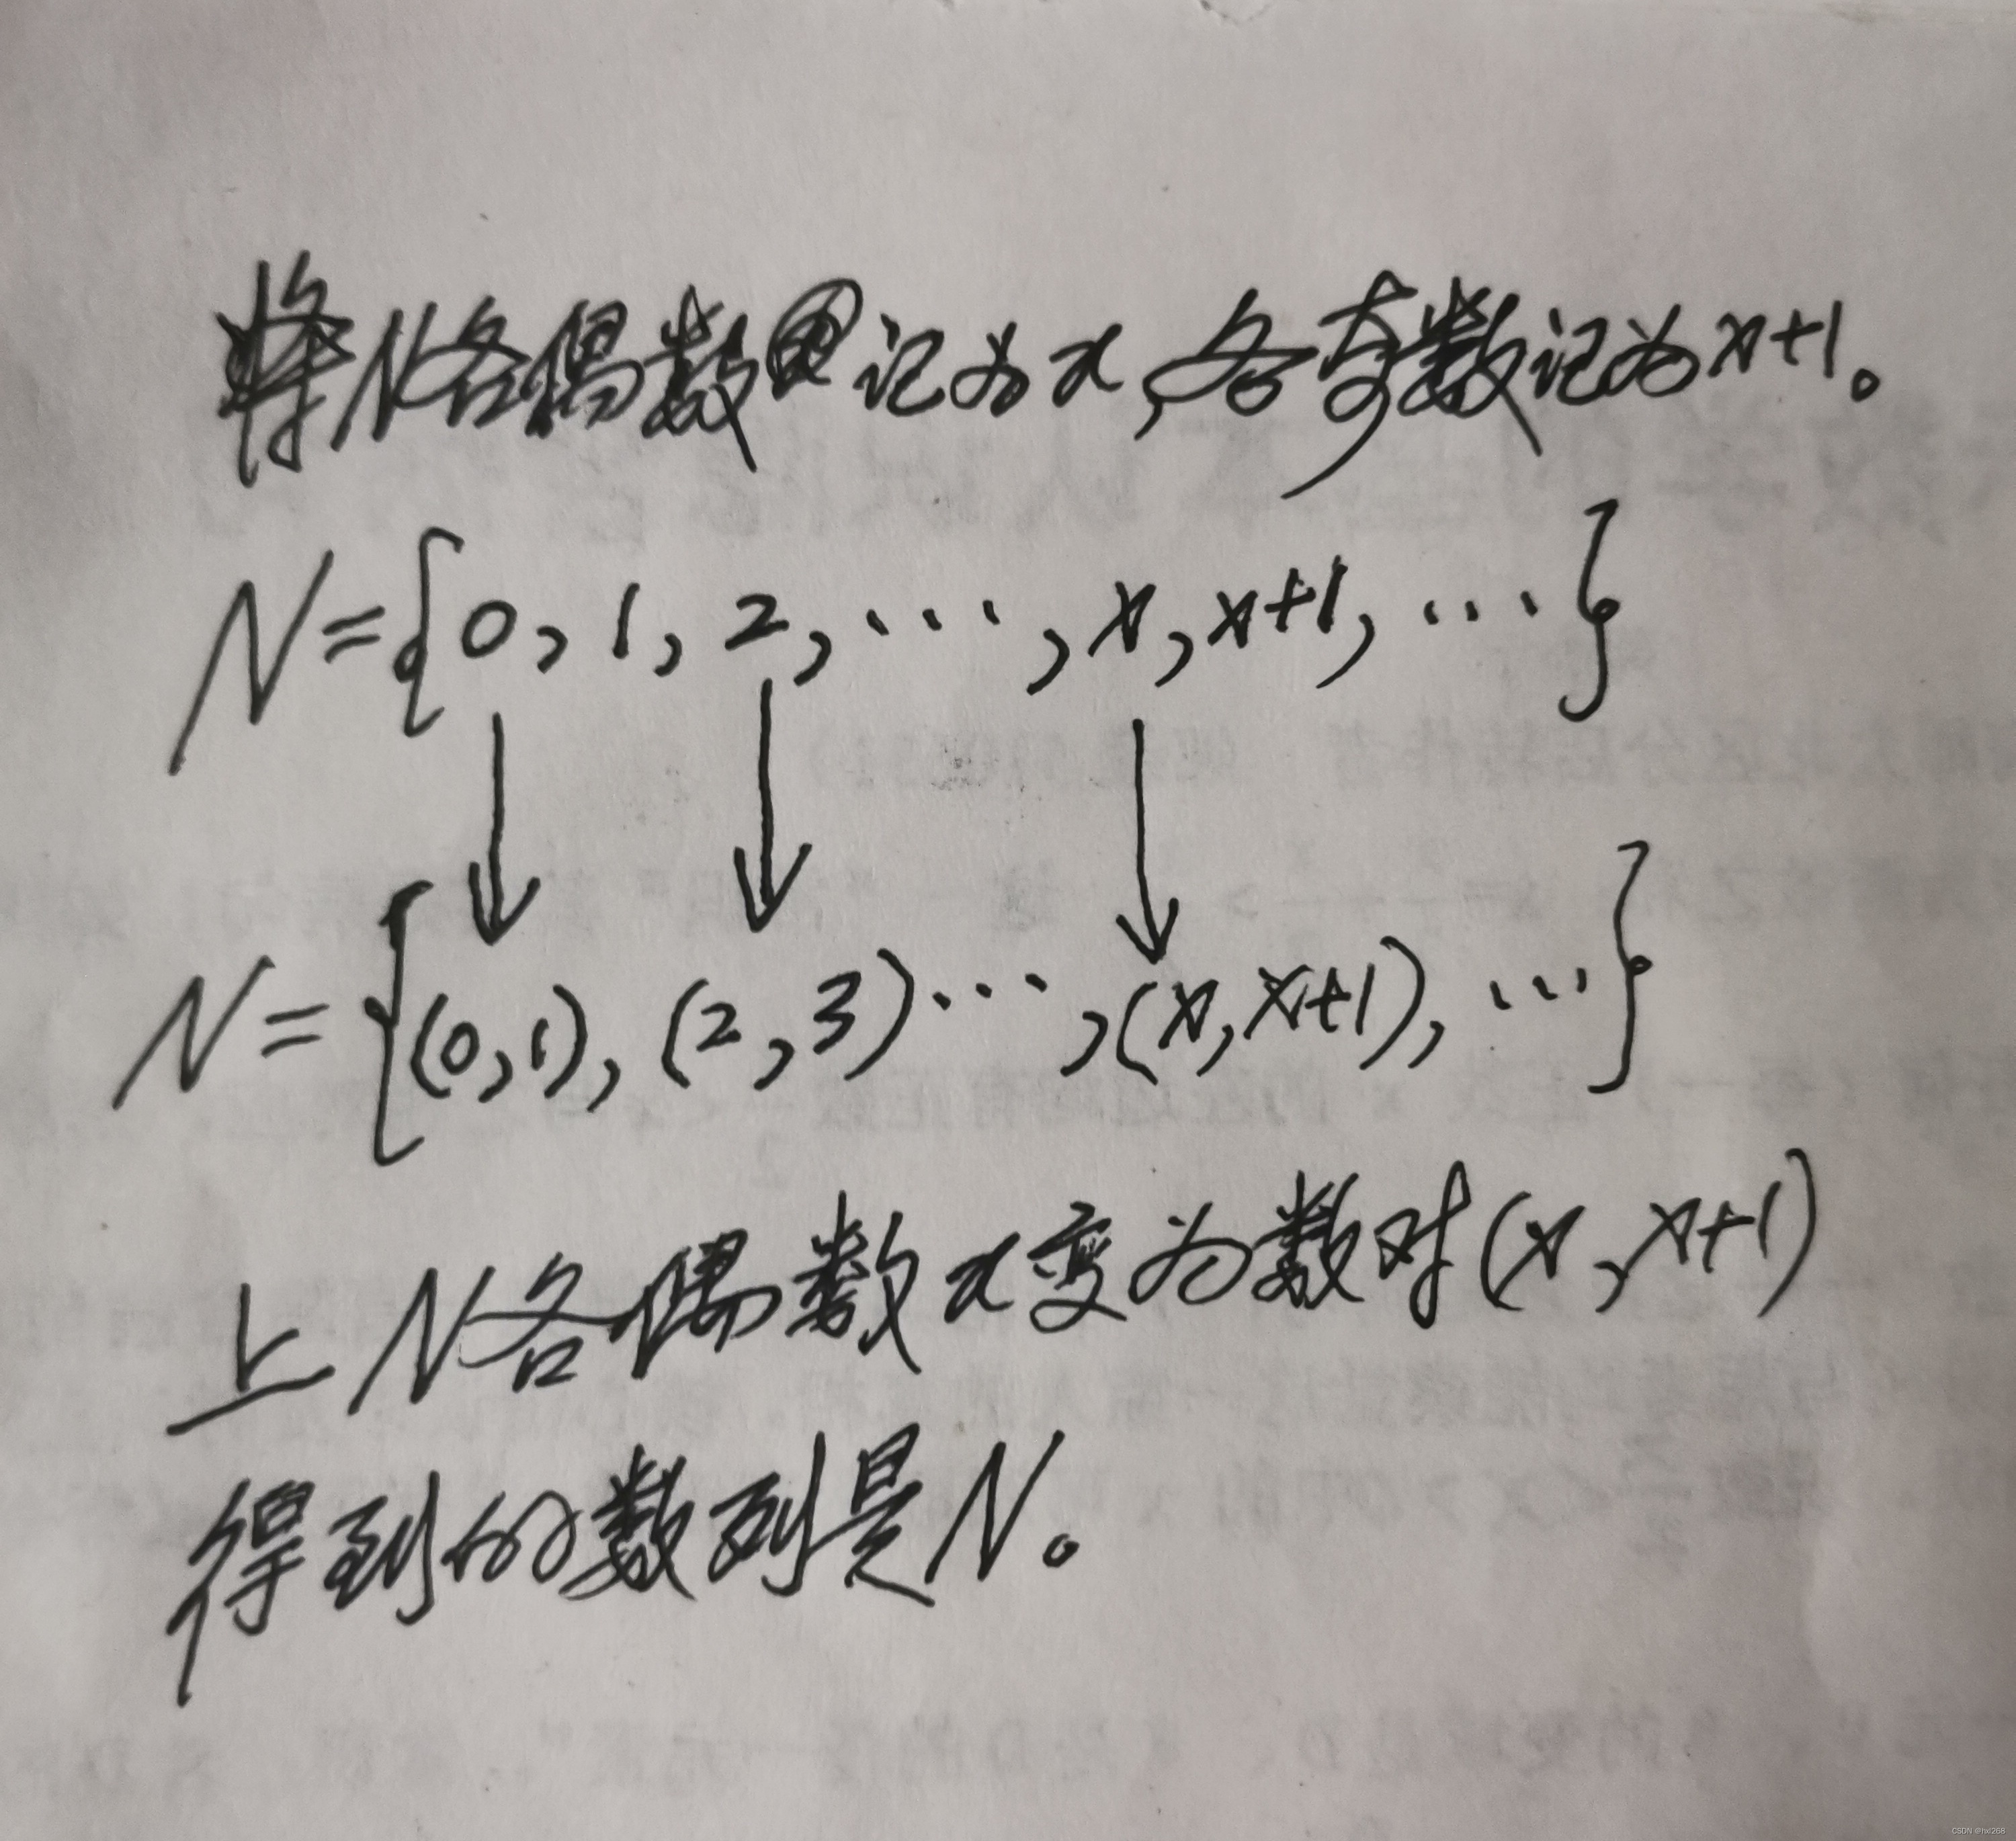 将N各偶数记为x,各奇数记为x+1。
N={0,1,2,…,x,x+1,…}
N={(0,1),(2,3)…,(x,x+1),…}
上N各偶数x变为数对(x,x+1)
得到的数列是N。
CSDN @hxl268